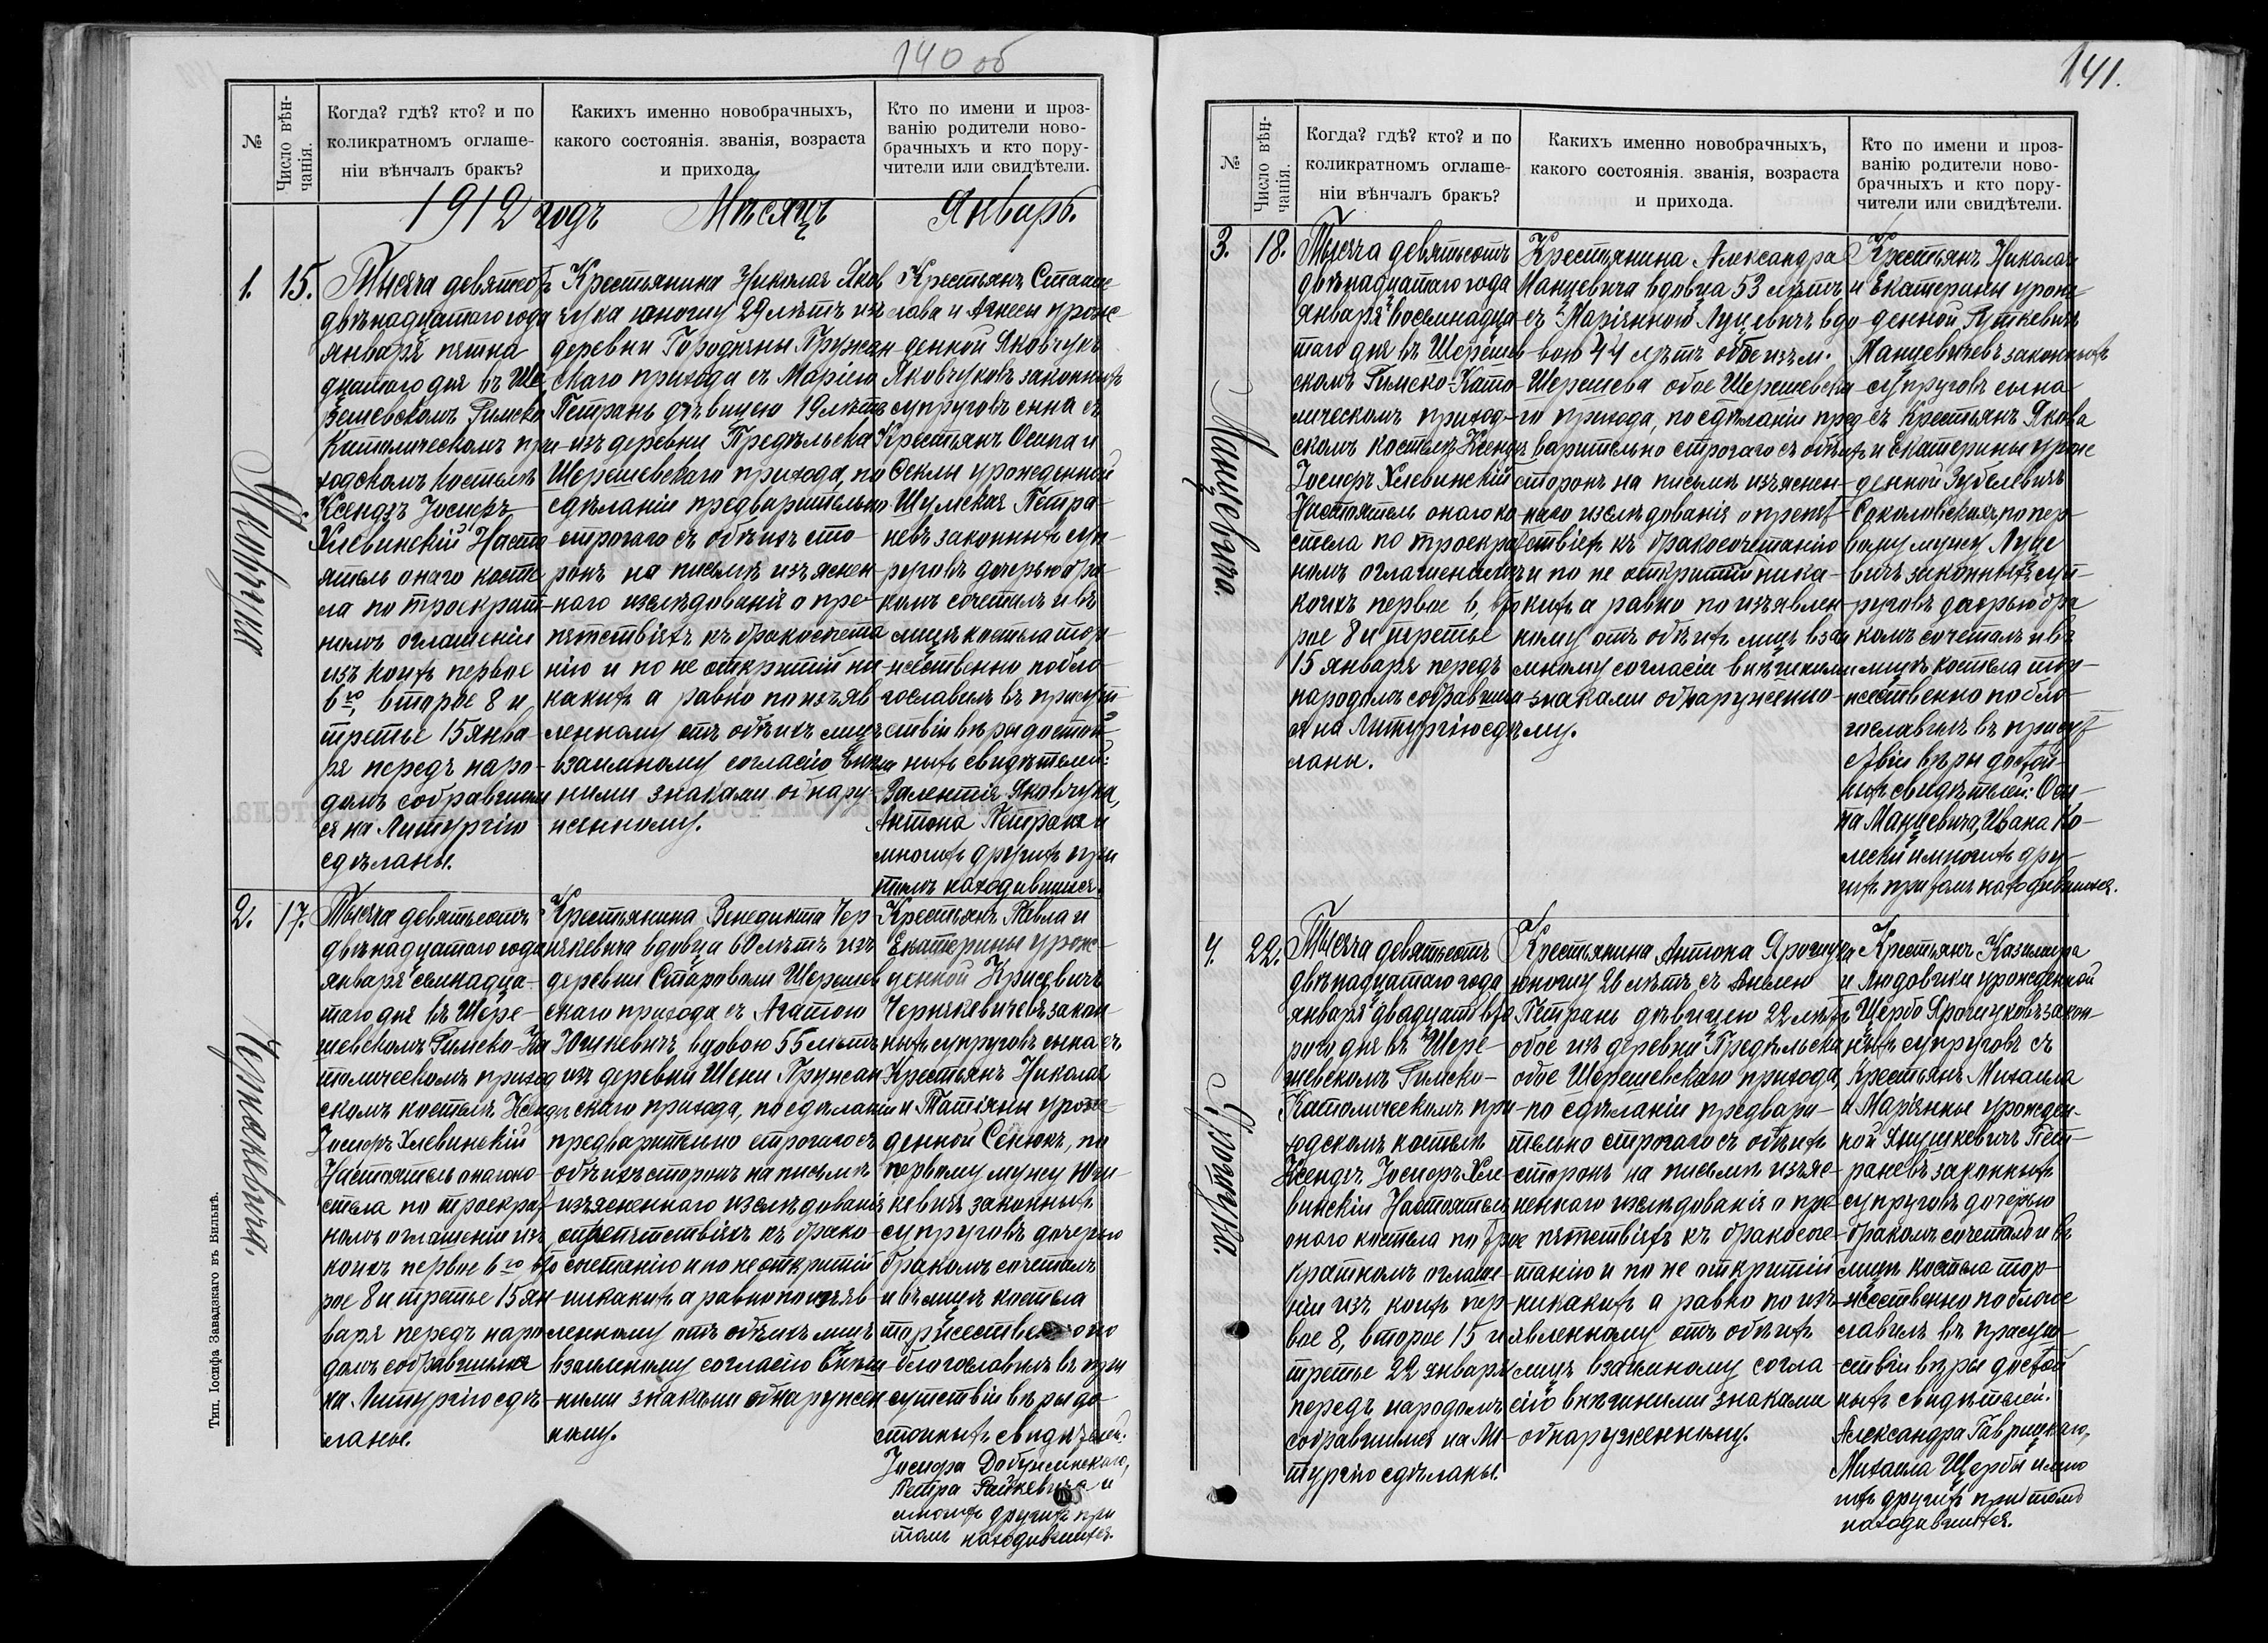 140 об
№
Число вѣн-
чанія.
Когда? гдѣ? кто? и по
коликратномъ оглаше-
ніи вѣнчалъ бракъ?
Какихъ именно новобрачныхъ,
какого состоянія. званія, возраста
и прихода.
Кто по имени и проз-
ванію родители ново-
брачныхъ и кто пору-
чители или свидѣтели.
1912 годъ Мѣсяцъ Январь.
1.
15.
Яковчука
Тысяча девятьсотъ
двѣнадцатаго года
января пятна
дцатаго дня въ Ше
решевскомъ Римско
Католическомъ при
ходскомъ костелѣ
Ксендзъ Іосифъ
Хлевинскій Насто
ятель онаго косте
ла по троекрат
номъ оглашеніи
изъ коихъ первое
6го, второе 8 и
третье 15 янва-
ря передъ наро-
домъ собравшим
ся на Литургію
сдѣланы.
Крестьянина Николая Яков
чука юношу 29 лѣтъ изъ
деревни Городняны Пружан
скаго прихода съ Маріею
Петрань дѣвицею 19 лѣтъ
изъ деревни Предѣльска
Шерешевскаго прихода, по
сдѣланіи предварительно
строгаго съ обѣихъ сто-
ронъ на письмѣ изъяснен
наго изслѣдованія о пре-
пятствіяхъ къ бракосочета
нію и по не открытіи ни
какихъ а равно по изъяв
ленному отъ обѣихъ лицъ
взаимному согласію внѣш
ними знаками обнару-
женному.
Крестьянъ Станис
лава и Агнесы урож
денной Яковчукъ
Яковчуковъ законныхъ
супруговъ сына съ
Крестьянъ Осипа и
Феклы урожденной
Шумская Петра-
невъ законныхъ суп
руговъ дочерью бра
комъ сочеталъ и въ
лицѣ костела тор
жественно побла-
гославилъ въ присут
ствіи вѣры достой
ныхъ свидѣтелей:
Валентія Яковчука,
Антона Петраня и
многихъ другихъ при
томъ находившихся.
2.
17.
Чернякевича.
Тысяча девятьсотъ
двѣнадцатаго года
января семнадца-
таго дня въ Шере-
шевскомъ Римско-Ка
толическомъ приход
скомъ костелѣ Ксендзъ
Іосифъ Хлевинскій
Настоятель онаго ко
стела по троекрат
номъ оглашеніи изъ
коихъ первое 6го вто
рое 8 и третье 15 ян
варя передъ наро
домъ собравшимся
на Литургію сдѣ-
ланы.
Крестьянина Венедикта Чер
някевича вдовца 60 лѣтъ изъ
деревни Староволи Шерешев
скаго прихода съ Агатою
Юшкевичъ вдовою 55 лѣтъ
изъ деревни Шени Пружан
скаго прихода, по сдѣланіи
предварительно строгаго съ
обѣихъ сторонъ на письмѣ
изъясненнаго изслѣдованія
о препятствіяхъ къ брако-
сочетанію и по не открытіи
никакихъ а равно по изъяв-
ленному отъ обѣихъ лицъ
взаимному согласію внѣш-
ними знаками обнаружен
ному.
Крестьянъ Павла и
Екатерины урож-
денной Крисевичъ
Чернякевичевъ закон
ныхъ супруговъ сына съ
Крестьянъ Николая
и Татіяны урож
денной Сенюкъ, по
первому мужу Юш-
кевичъ законныхъ
супруговъ дочерью
бракомъ сочеталъ
и въ лицѣ костела
торжественно по
благославилъ въ при
сутствіи вѣры до
стойныхъ свидѣтелей:
Іосифа Добужинскаго,
Петра Райкевича и
многихъ другихъ при
томъ находившихся.
Тип. Іосифа Завадзкаго въ Вильнѣ.
141.
№
Число вѣн-
чанія.
Когда? гдѣ? кто? и по
коликратномъ оглаше-
ніи вѣнчалъ бракъ?
Какихъ именно новобрачныхъ,
какого состоянія. званія, возраста
и прихода.
Кто по имени и проз-
ванію родители ново-
брачныхъ и кто пору-
чители или свидѣтели.
3.
18.
Манцевича.
Тысяча девятьсотъ
двѣнадцатаго года
января восемнадца
таго дня въ Шерешев
скомъ Римско-Като
лическомъ приход-
скомъ костелѣ Ксендзъ
Іосифъ Хлевинскій
Настоятель онаго ко
стела по троекрат
номъ оглашеніи изъ
коихъ первое 6, вто
рое 8 и третье
15 января передъ
народомъ собравшим
ся на Литургію сдѣ
ланы.
Крестьянина Александра
Манцевича вдовца 53 лѣтъ
съ Маріянною Луцевичъ вдо
вою 44 лѣтъ обое изъ м.
Шерешева обое Шерешевска
го прихода, по сдѣланіи пред
варительно строгаго съ обѣихъ
сторонъ на письмѣ изъяснен-
наго изслѣдованія о препят
ствіяхъ къ бракосочетанію
и по не открытіи ника-
кихъ а равно по изъявлен-
ному отъ обѣихъ лицъ вза
имному согласію внѣшними
знаками обнаруженно-
му.
Крестьянъ Николая
и Екатерины урож
денной Гуткевичъ
Манцевичевъ законныхъ
супруговъ сына
съ Крестьянъ Якова
и Екатерины урож
денной Зубелевичъ
Соколовская, по пер
вому мужу Луце
вичъ законныхъ суп
руговъ дочерью бра
комъ сочеталъ и въ
лицѣ костела тор
жественно побла-
гославилъ въ присут
ствіи вѣры достой-
ныхъ свидѣтелей: Оси-
па Манцевича, Ивана Ко-
лески и многихъ дру-
гихъ при томъ находившихся.
4.
22.
Ярошука.
Тысяча девятьсотъ
двѣнадцатаго года
января двадцать вто
рого дня въ Шере-
шевскомъ Римско-
Католическомъ при-
ходскомъ костелѣ
Ксендзъ Іосифъ Хле-
винскій Настоятель
онаго костела по трое
кратномъ оглаше-
ніи изъ коихъ пер-
вое 8, второе 15 и
третье 22 января
передъ народомъ
собравшимся на Ли-
тургію сдѣланы.
Крестьянина Антона Ярошука
юношу 26 лѣтъ съ Анною
Петрань дѣвицею 22 лѣтъ
обое изъ деревни Предѣльска
обое Шерешевскаго прихода,
по сдѣланіи предвари-
тельно строгаго съ обѣихъ
сторонъ на письмѣ изъяс-
неннаго изслѣдованія о пре
пятствіяхъ къ бракосоче-
танію и по не открытіи
никакихъ а равно по изъ-
явленному отъ обѣихъ
лицъ взаимному согла
сію внѣшними знаками
обнаруженному.
Крестьянъ Казимира
и Людовики урожденной
Щербо Ярошуковъ закон-
ныхъ супруговъ съ
Крестьянъ Михаила
и Марянны урожден-
ной Янушкевичъ Пет-
раневъ законныхъ
супруговъ дочерью
бракомъ сочеталъ и въ
лицѣ костела тор-
жественно поблаго
славилъ въ присут-
ствіи вѣры достой
ныхъ свидѣтелей:
Александра Гаврицкаго,
Михаила Щербы и мно
гихъ другихъ при томъ
находившихся.